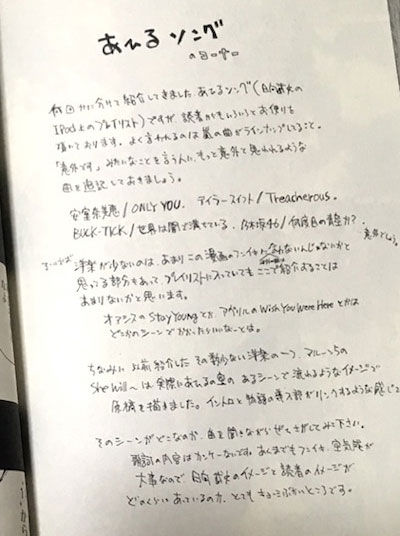 あひるソング
のコーナー
何回かに分けて紹介してきました あひるソング(日向武史の
iPod上のプレイリスト)ですが、読者からもいろいろとお便りを
頂いております。よく言われるのは嵐の曲がラインナップしてること。
「意外です」みたいなことを言う人に、もっと意外と思われるような
曲を追記しておきましょう。
安室奈美恵/ONLY YOU. テイラースイフト/Treacherous.
BUCK-TICK/世界は闇で満ちている. 乃木坂46/何度目の青空か?.
意外でしょ。
洋楽が少ないのは、あまりこの漫画のフンイキに合わないんじゃないかと
思ってる部分もあって、プレイリストに入っていても ここで紹介することは
あまりないかと思います。
オアシスのStay Youngとか、アヴリルのWish You Were Hereとかは
どこかのシーンでかかったらいいなーとは。
ちなみに以前紹介した その数少ない洋楽の一つ、マルーン5の
She Will〜は実際にあひるの空のあるシーンで流れるようなイメージで
原稿を描きました。イントロと物語の導入部がリンクするような感じで
そのシーンがどこなのか、曲を聞きながらぜひさがしてみて下さい。
歌詞の内容はカンケーないです。あくまでもフンイキ、空気感が
大事なので 日向武史のイメージと読者のイメージが
どのくらい あっているのか、とてもきょーみぶかいところです。